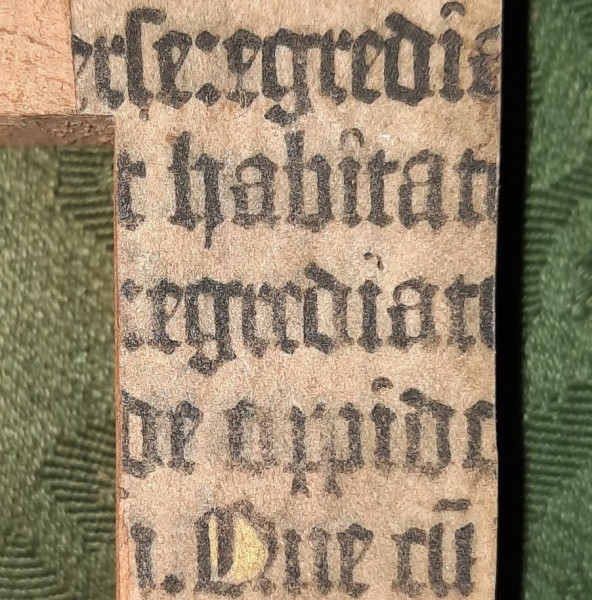 rse:egredie
t habitat
:egrediat
de oppido
i. Que cū